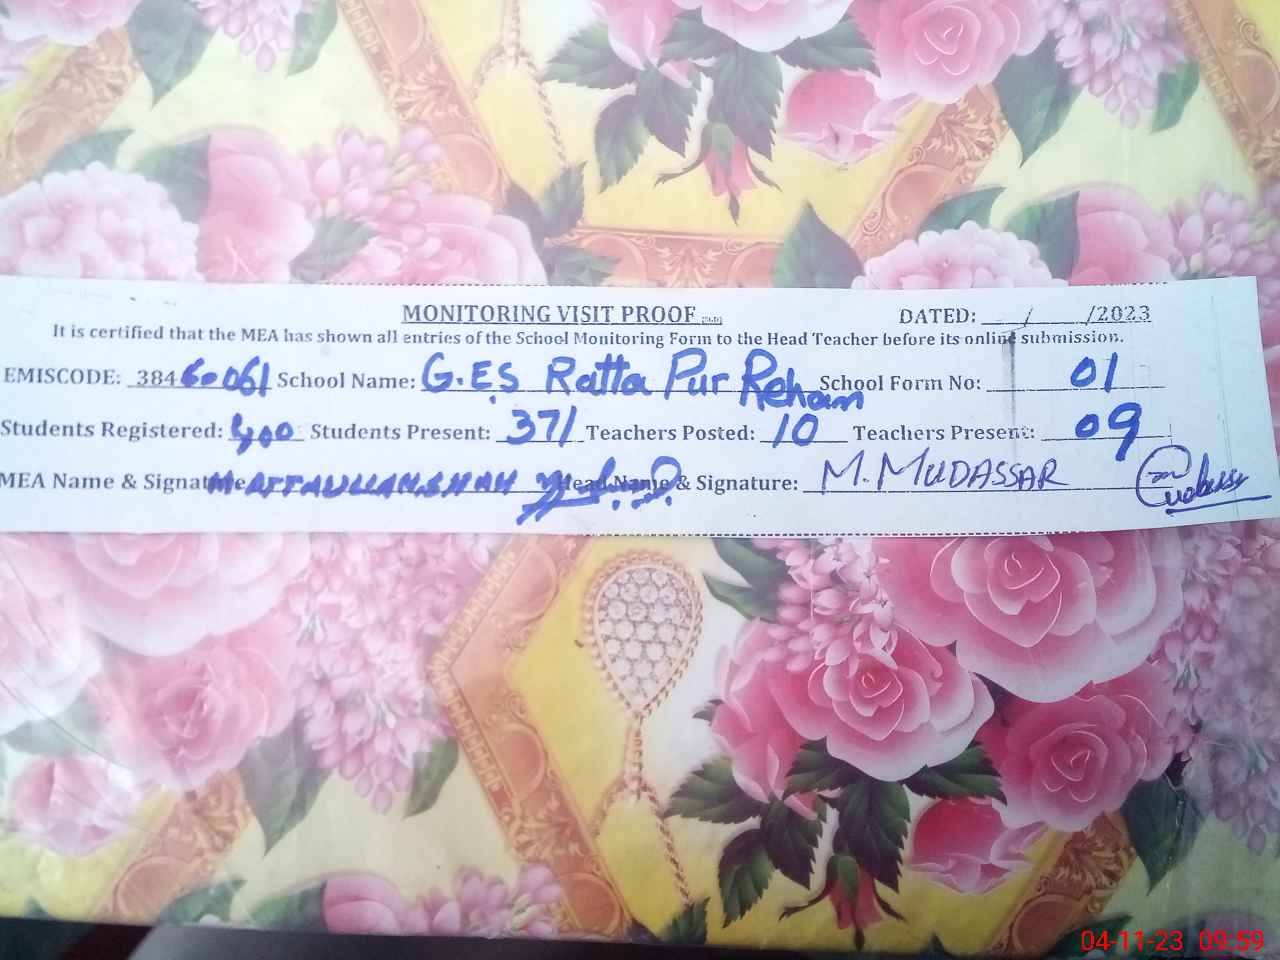 MONITORING VISIT PROOF DATED: __/__/2023
It is certified that the MEA has shown all entries of the School Monitoring Form to the Head Teacher before its online submission.
EMISCODE: 38460061 School Name: G.E.S Ratta Pur Reham School Form No: 01
Students Registered: 400 Students Present: 371 Teachers Posted: 10 Teachers Present: 09
MEA Name & Signature M ATTAULLAH SHAH Head Name & Signature: M. MUDASSAR
04-11-23 09:59